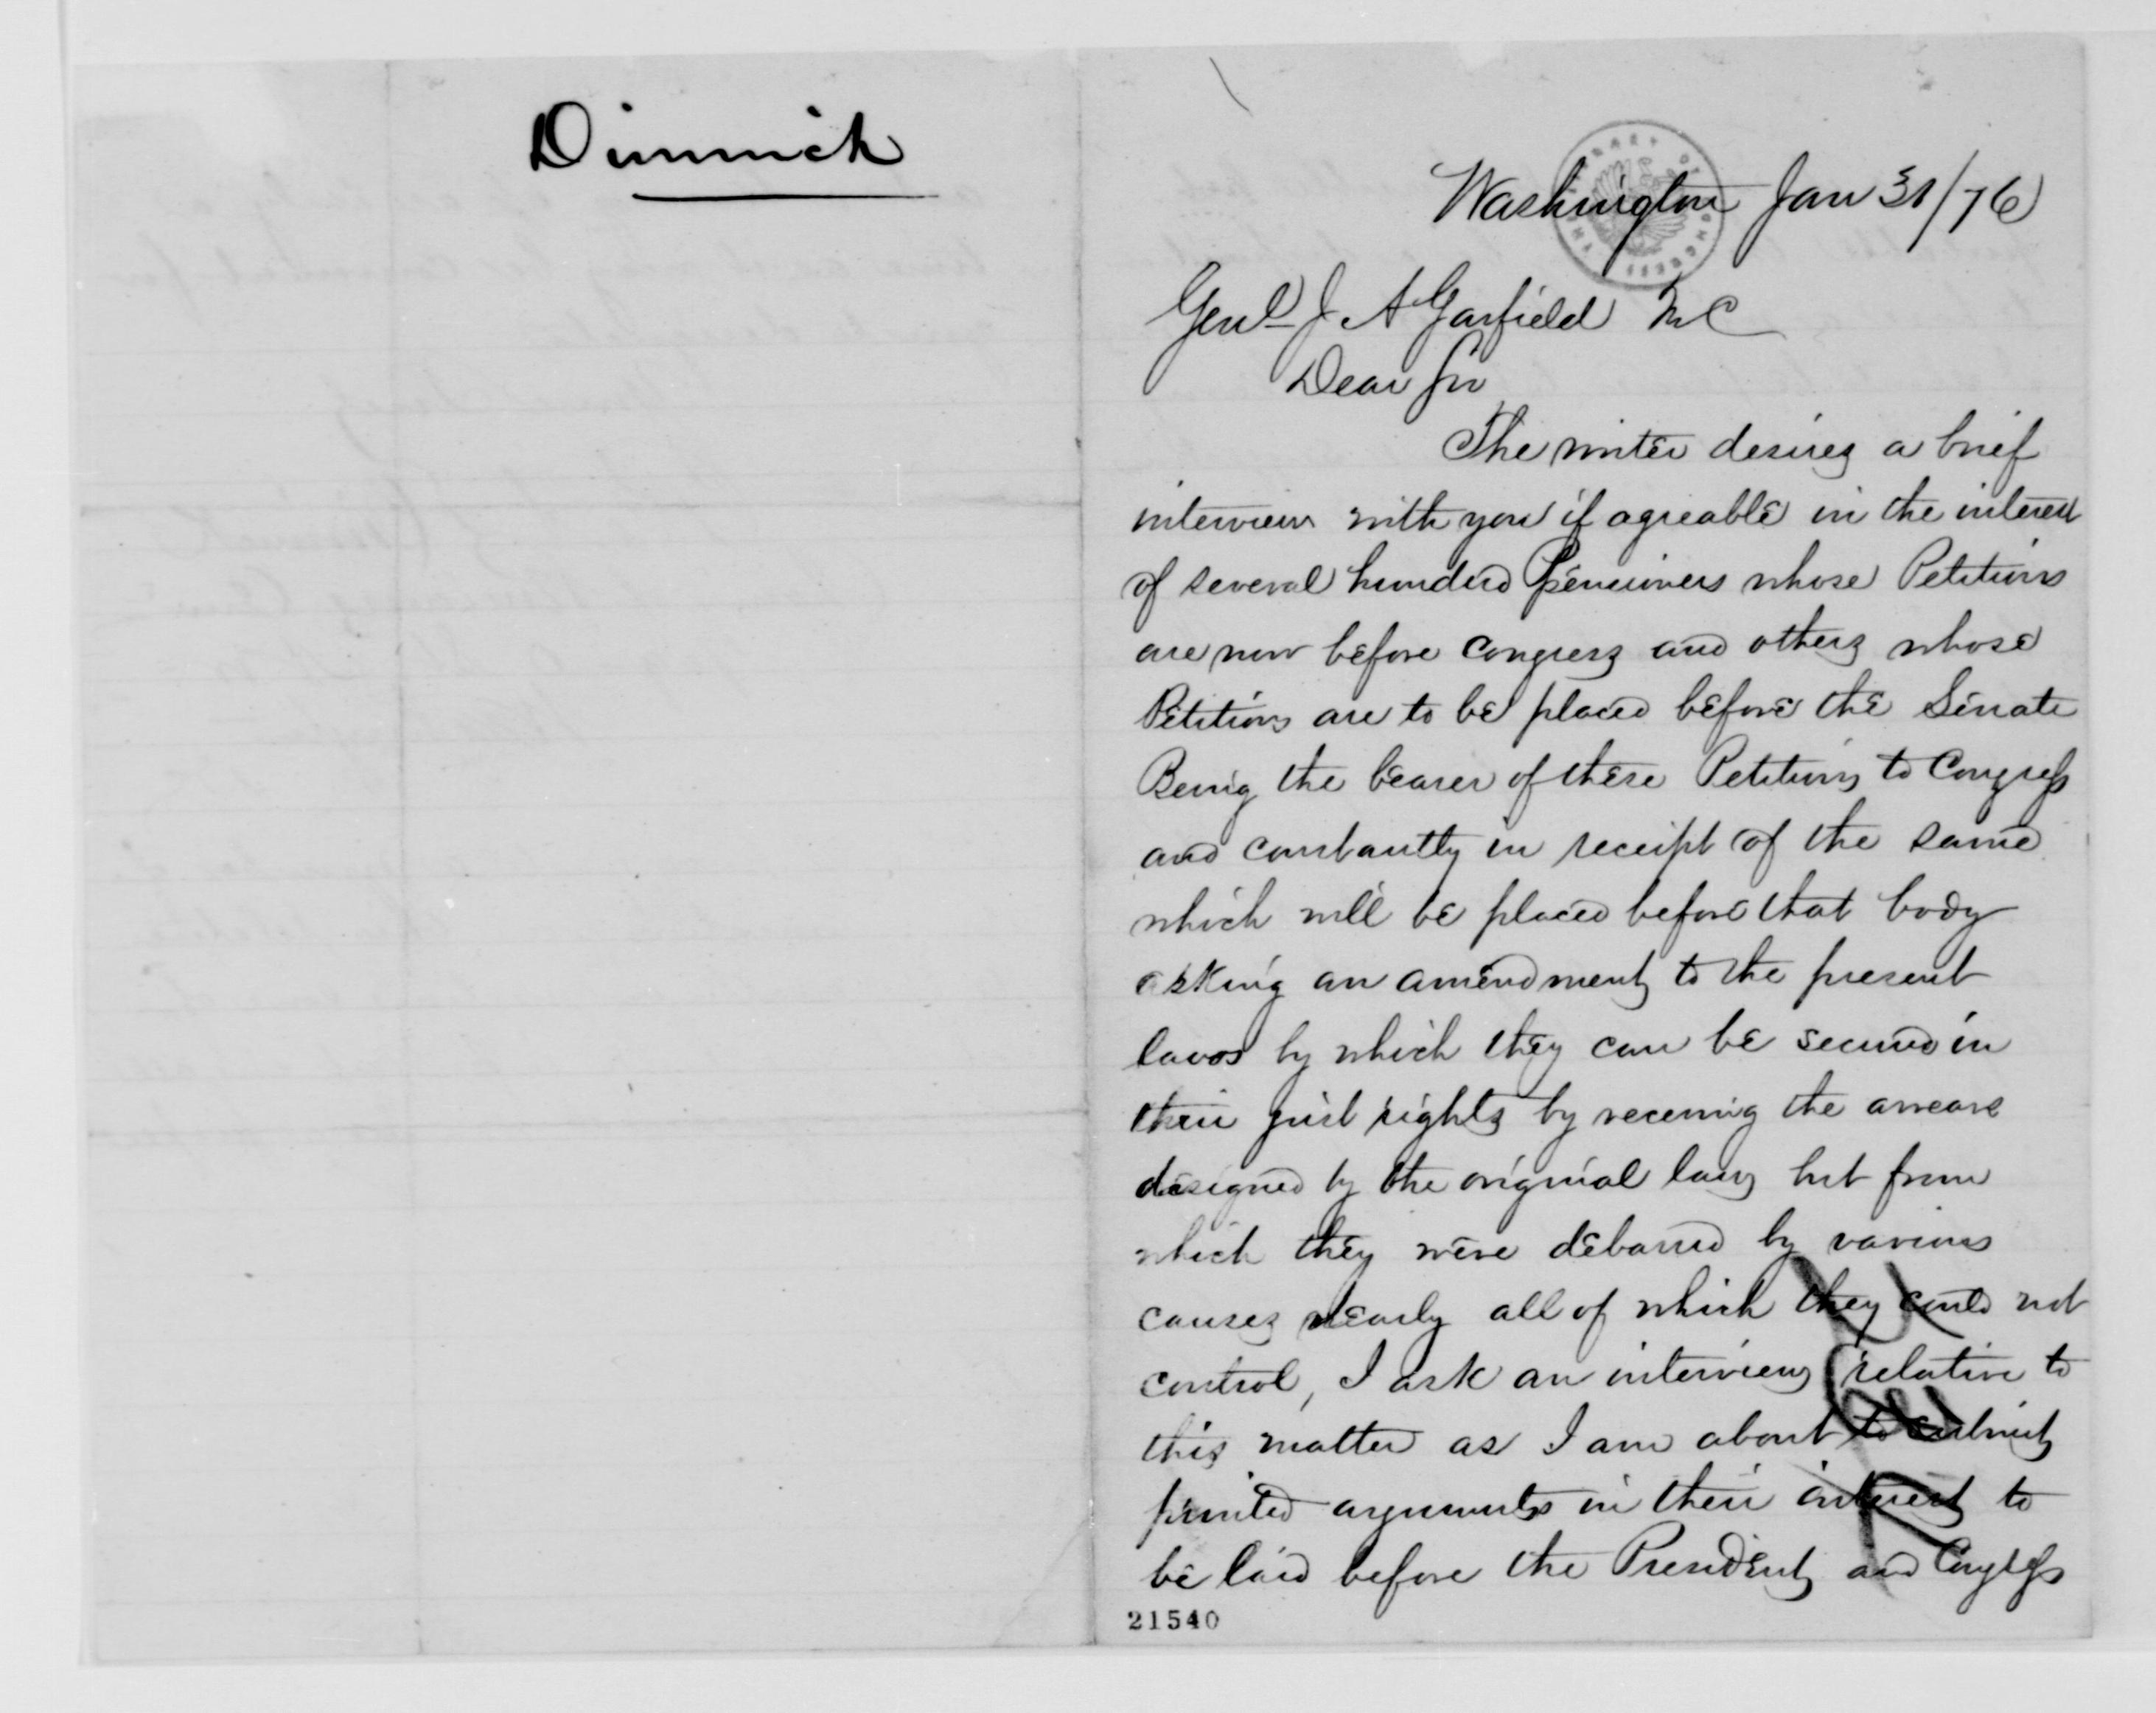 Dimmick
Washington Jan 31/76
Genl J A Garfield MC
Dear Sir
The writer desires a brief
interview with you if agreable in the interest
of several hundred Pensioners whose Petitions
are now before Congress and others whose
Petitions are to be placed before the Senate
Being the bearer of these Petitions to Congress
and constantly in receipt of the same
which will be placed before that body
asking an amendment to the present
laws by which they can be secured in
their just rights by receiving the arrears
designed by the original law but from
which they were debarred by various
causes nearly all of which they could not
control, I ask an interview relative to
this matter as I am about to submit
printed arguments in their interest to
be laid before the President and Congress
21540